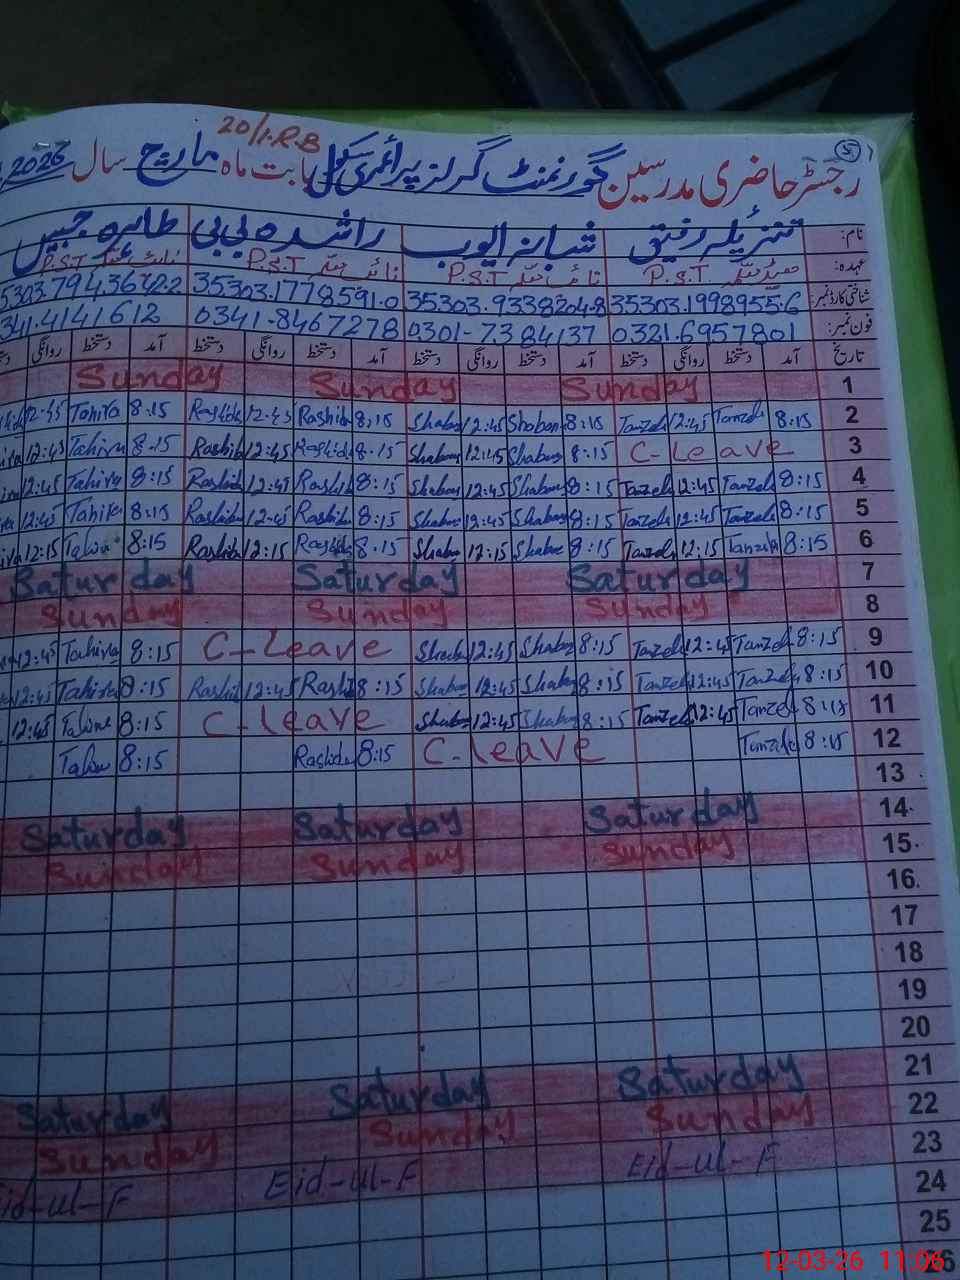 20/1.R.B
رجسٹر حاضری مدرسین گورنمنٹ گرلز پرائمری سکول بابت ماہ مارچ سال 2026
نام: تنزیلہ رفیق شبانہ ایوب راشدہ بی بی طاہرہ جبیں
عہدہ: P.S.T P.S.T P.S.T P.S.T
شناختی کارڈ نمبر: 35303.1998955.6 35303.9338204.8 35303.1778591.0
فون نمبر: 0321.6957801 0301-7384137 0341-8467278 341.4141612
تاریخ آمد دستخط روانگی دستخط آمد دستخط روانگی دستخط آمد دستخط روانگی دستخط آمد دستخط روانگی
1 Sunday Sunday Sunday
2 8:15 Tanzela 12:45 Tanzela 8:15 Shabana 12:45 Shabana 8:15 Rashida 12:45 Rashida 8:15 Tahira 12:45
3 C-Leave 8:15 Shabana 12:45 Shabana 8:15 Rashida 12:45 Rashida 8:15 Tahira 12:45
4 8:15 Tanzela 12:45 Tanzela 8:15 Shabana 12:45 Shabana 8:15 Rashida 12:45 Rashida 8:15 Tahira 12:45
5 8:15 Tanzela 12:45 Tanzela 8:15 Shabana 12:45 Shabana 8:15 Rashida 12:45 Rashida 8:15 Tahira 12:45
6 8:15 Tanzela 12:15 Tanzela 8:15 Shabana 12:15 Shabana 8:15 Rashida 12:15 Rashida 8:15 Tahira 12:15
7 Saturday Saturday Saturday
8 Sunday Sunday Sunday
9 8:15 Tanzela 12:45 Tanzela 8:15 Shabana 12:45 Shabana C-Leave 8:15 Tahira 12:45
10 8:15 Tanzela 12:45 Tanzela 8:15 Shabana 12:45 Shabana 8:15 Rashida 12:45 Rashida 8:15 Tahira 12:45
11 8:15 Tanzela 12:45 Tanzela 8:15 Shabana 12:45 Shabana C-Leave 8:15 Tahira 12:45
12 8:15 Tanzela C-Leave 8:15 Rashida 8:15 Tahira
13
14 Saturday Saturday Saturday
15 Sunday Sunday Sunday
16
17
18
19
20
21 Saturday Saturday Saturday
22 Sunday Sunday Sunday
23 Eid-ul-F Eid-ul-F Eid-ul-F
24
25
12-03-26 11:06